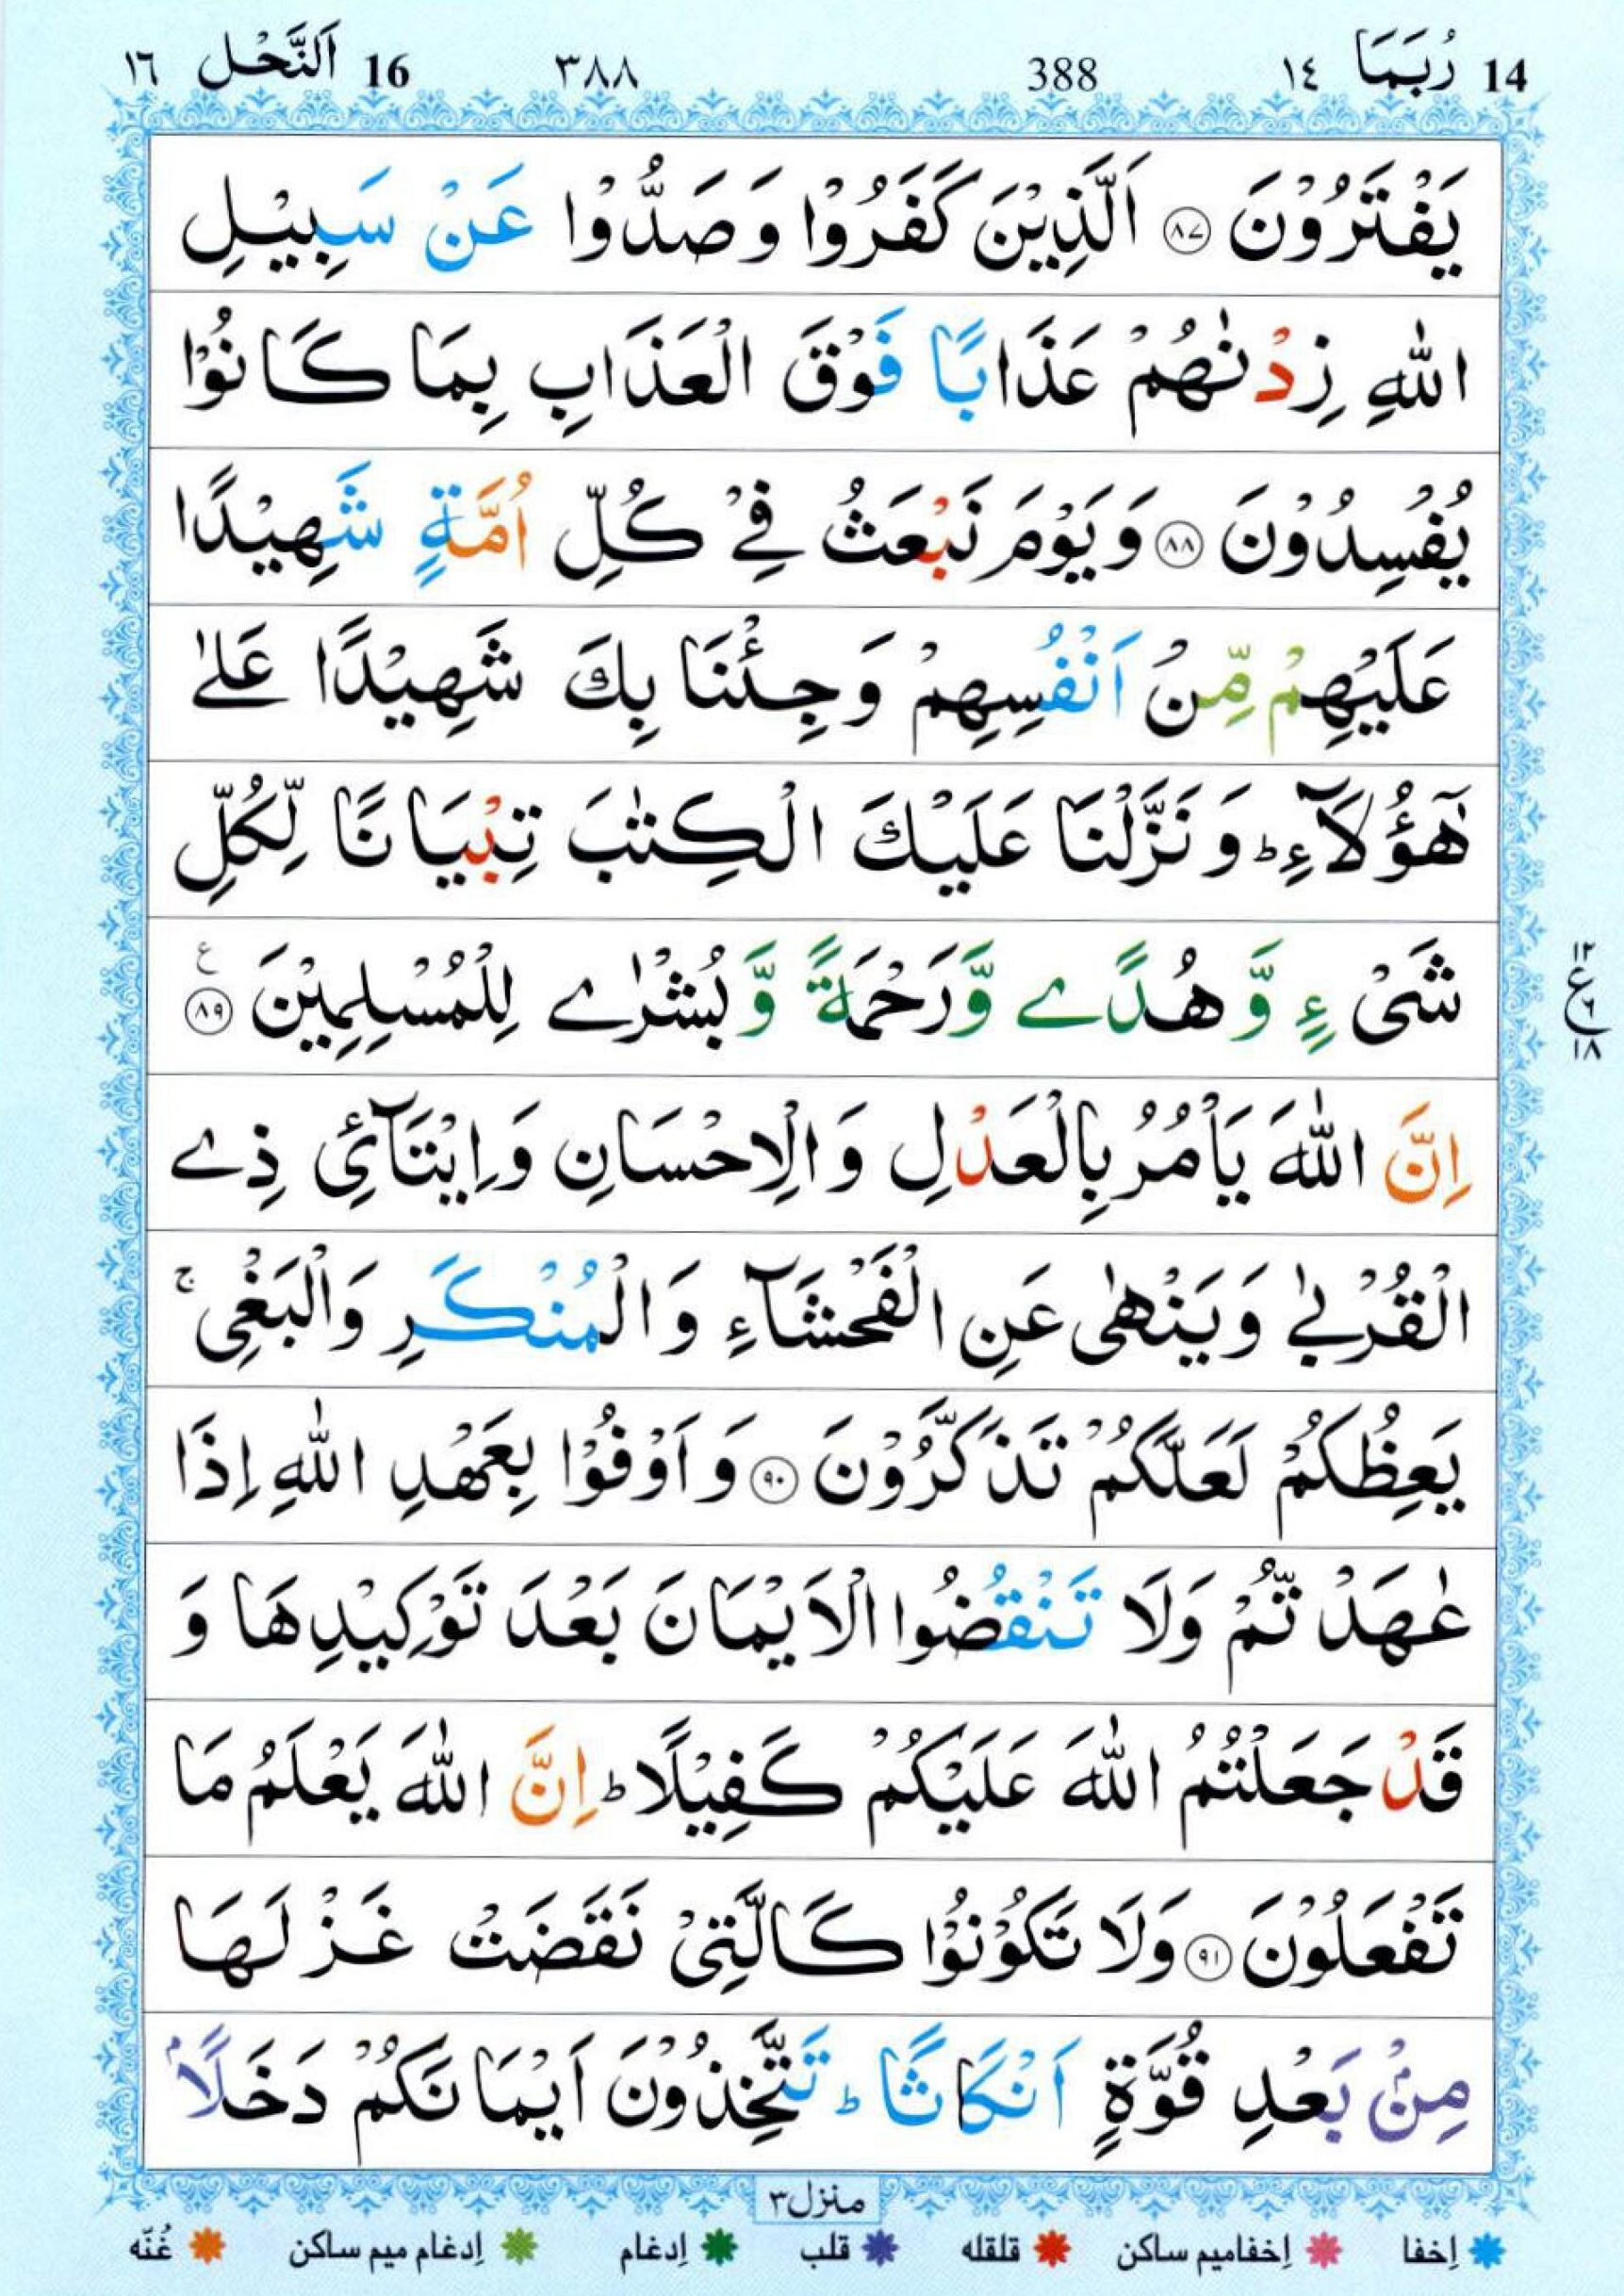 14 رُبَمَا ١٤ 388 ٣٨٨ 16 اَلنَّحْل ١٦
يَفْتَرُوْنَ ۝٨٧ اَلَّذِيْنَ كَفَرُوْا وَ صَدُّوْا عَنْ سَبِيْلِ
اللّٰهِ زِدْنٰهُمْ عَذَابًا فَوْقَ الْعَذَابِ بِمَا كَانُوْا
يُفْسِدُوْنَ ۝٨٨ وَ يَوْمَ نَبْعَثُ فِيْ كُلِّ اُمَّةٍ شَهِيْدًا
عَلَيْهِمْ مِّنْ اَنْفُسِهِمْ وَ جِئْنَا بِكَ شَهِيْدًا عَلٰى
هٰٓؤُلَآءِ ؕ وَ نَزَّلْنَا عَلَيْكَ الْكِتٰبَ تِبْيَانًا لِّكُلِّ
شَيْءٍ وَّ هُدًى وَّ رَحْمَةً وَّ بُشْرٰى لِلْمُسْلِمِيْنَ ۝٨٩ ع
١٢ ع ٦ ١٨
اِنَّ اللّٰهَ يَاْمُرُ بِالْعَدْلِ وَ الْاِحْسَانِ وَ اِيْتَآئِ ذِي
الْقُرْبٰى وَ يَنْهٰى عَنِ الْفَحْشَآءِ وَ الْمُنْكَرِ وَ الْبَغْيِ ۚ
يَعِظُكُمْ لَعَلَّكُمْ تَذَكَّرُوْنَ ۝٩٠ وَ اَوْفُوْا بِعَهْدِ اللّٰهِ اِذَا
عٰهَدْتُّمْ وَلَا تَنْقُضُوا الْاَيْمَانَ بَعْدَ تَوْكِيْدِهَا وَ
قَدْ جَعَلْتُمُ اللّٰهَ عَلَيْكُمْ كَفِيْلًا ؕ اِنَّ اللّٰهَ يَعْلَمُ مَا
تَفْعَلُوْنَ ۝٩١ وَلَا تَكُوْنُوْا كَالَّتِيْ نَقَضَتْ غَزْلَهَا
مِنْۢ بَعْدِ قُوَّةٍ اَنْكَاثًا ؕ تَتَّخِذُوْنَ اَيْمَانَكُمْ دَخَلًاۢ
منزل ٣
إخفا إخفاميم ساكن قلقله قلب إدغام إدغام ميم ساكن غُنّه